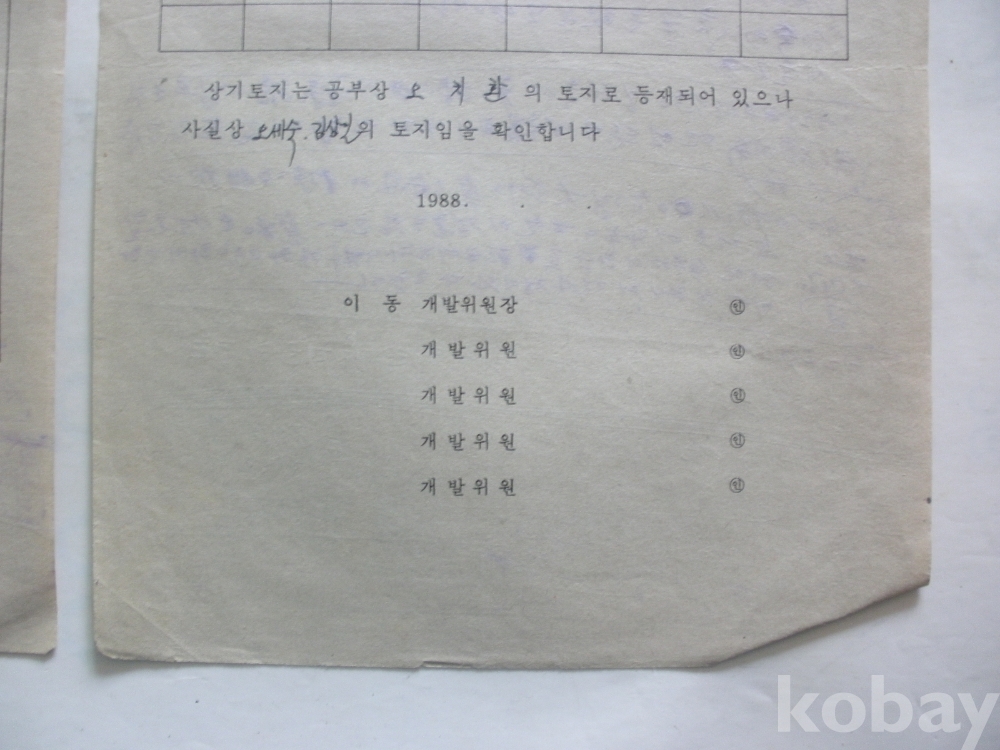 상기토지는 공부상 오 치 환 의 토지로 등재되어 있으나
사실상 오세숙. 김상일의 토지임을 확인합니다
1988. . .
이 동 개발위원장 ㊞
개 발 위 원 ㊞
개 발 위 원 ㊞
개 발 위 원 ㊞
개 발 위 원 ㊞
kobay